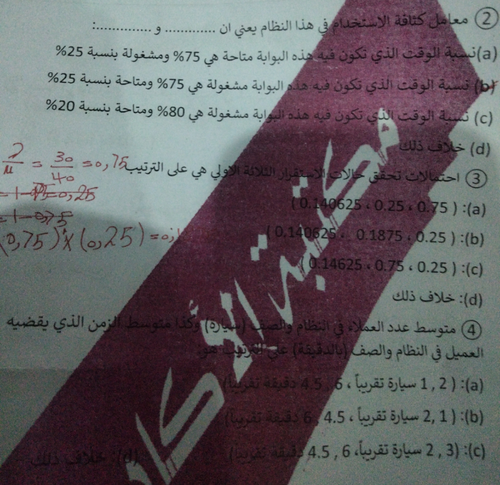 ② معامل كثافة الاستخدام في هذا النظام يعني ان ............. و ..............:
(a) نسبة الوقت الذي تكون فيه هذه البوابة متاحة هي 75% ومشغولة بنسبة 25%
(b) نسبة الوقت الذي تكون فيه هذه البوابة مشغولة هي 75% ومتاحة بنسبة 25%
(c) نسبة الوقت الذي تكون فيه هذه البوابة مشغولة هي 80% ومتاحة بنسبة 20%
(d) خلاف ذلك
= 30/40 = 0,75
③ احتمالات تحقق حالات الاستقرار الثلاثة الاولي هي على الترتيب
= 0,25
(a): ( 0.75 ، 0.25 ، 0.140625 )
(b): ( 0.25 ، 0.1875 ، 0.140625 )
(0,75) x (0,25) = 0,1
(c): ( 0.25 ، 0.75 ، 0.14625 )
(d): خلاف ذلك
④ متوسط عدد العملاء في النظام والصف (سيارة) وكذا متوسط الزمن الذي يقضيه
العميل في النظام والصف (بالدقيقة) على الترتيب هو
(a): ( 2 , 1 سيارة تقريباً ، 6 , 4.5 دقيقة تقريباً)
(b): ( 1 , 2 سيارة تقريباً ، 4.5 , 6 دقيقة تقريباً)
(c): ( 3 , 2 سيارة تقريباً، 6 , 4.5 دقيقة تقريباً)
(d): خلاف ذلك
مكتبة الأكاد